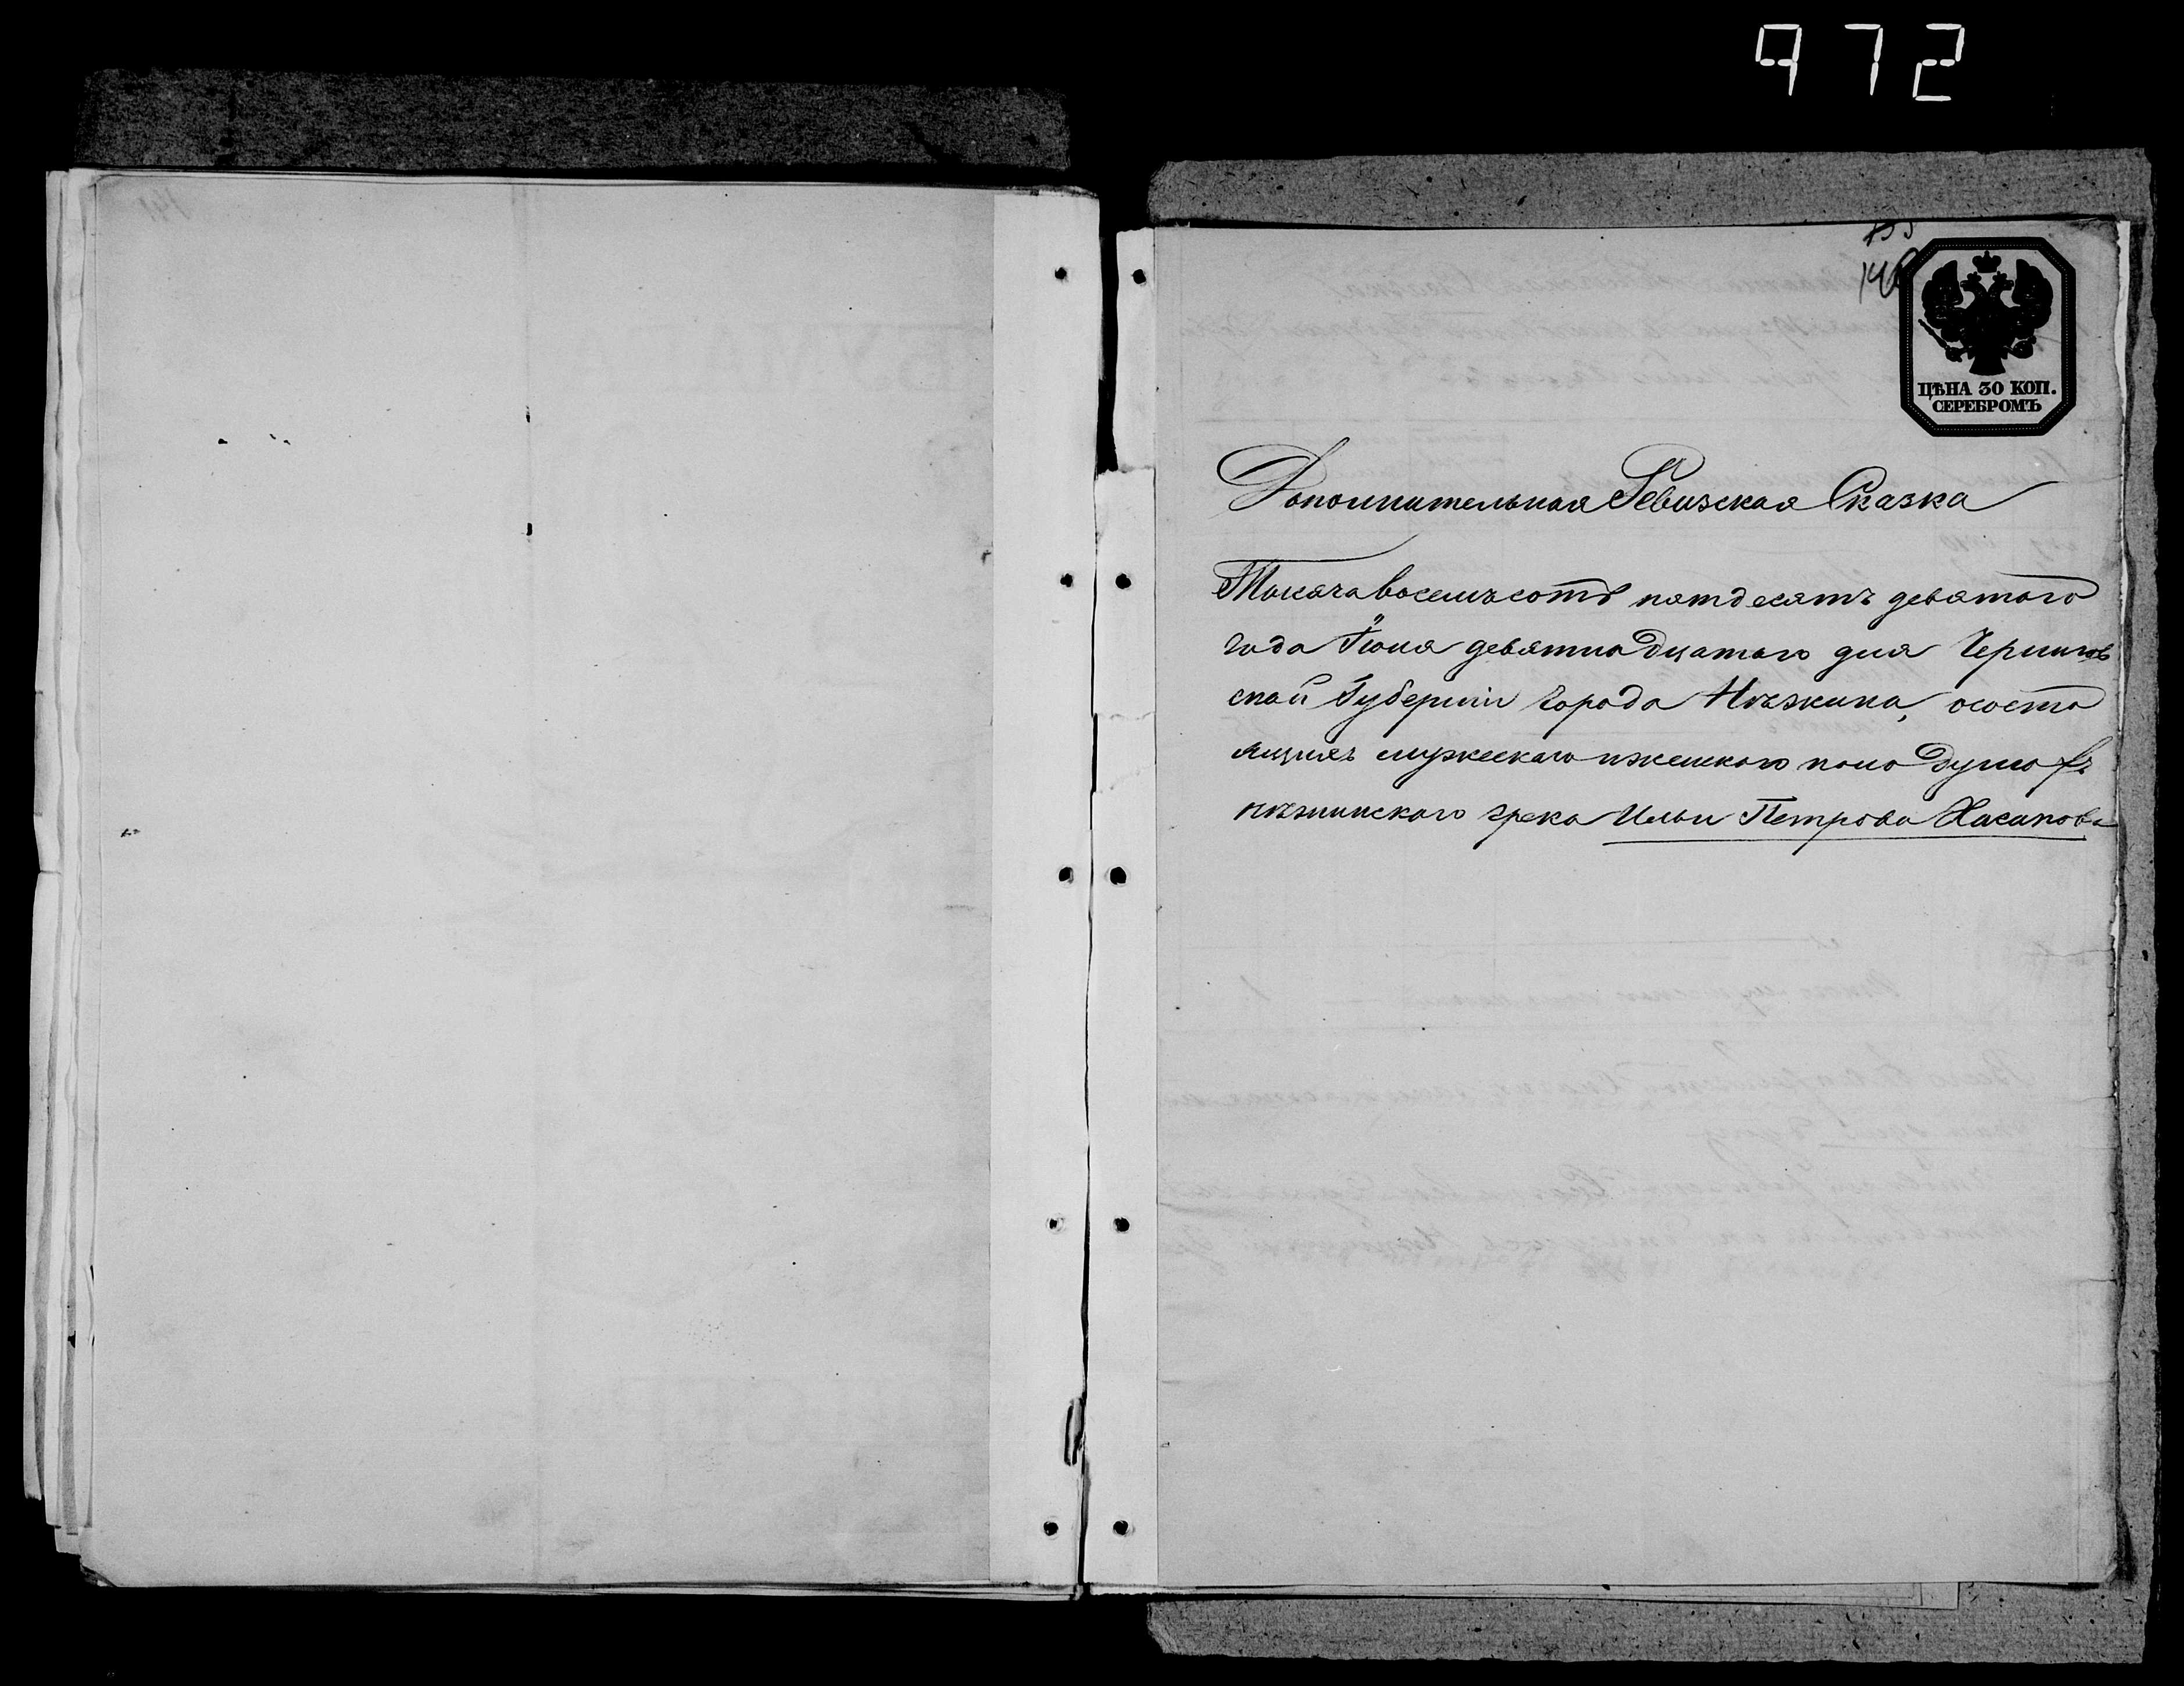 972
ЦѢНА 30 КОП.
СЕРЕБРОМЪ
Дополнительная Ревизская Сказка
Тысяча восемьсотъ пятдесятъ девятаго
года Іюня девятнадцатаго дня Чернигов
ской Губерніи города Нѣжина, ососто
ящихъ мужескаго иженскаго пола душахъ
нѣжинскаго грека Ильи Петрова